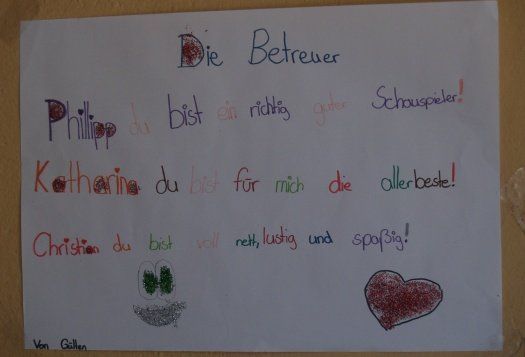 Die Betreuer
Phillipp du bist ein richtig guter Schauspieler!
Katharina du bist für mich die allerbeste!
Christian du bist voll nett, lustig und spaßig!
Von Gülten